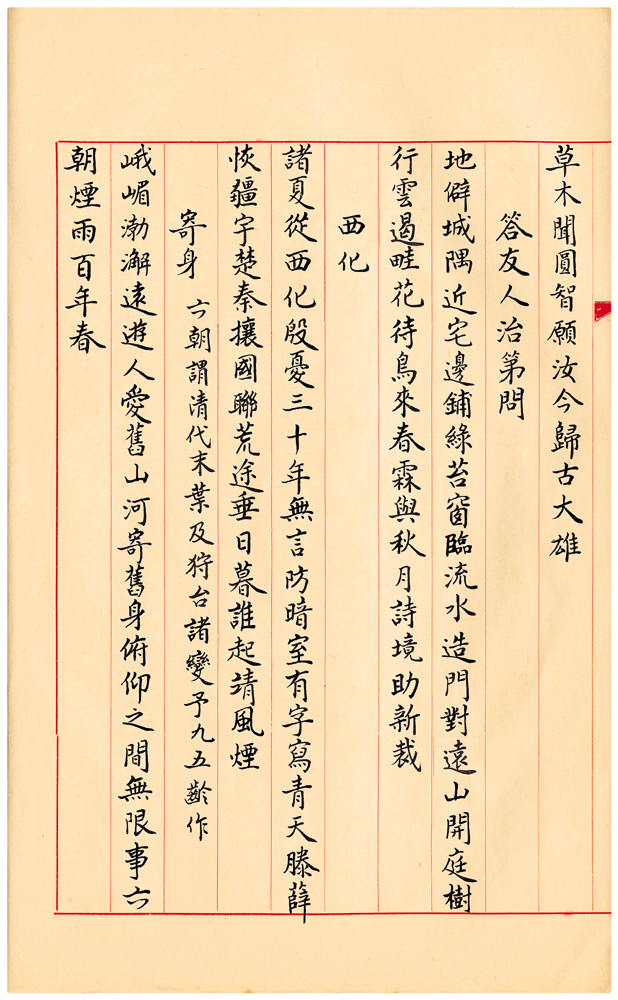 草木聞圓智願汝今歸古大雄
答友人治第問
地僻城隅近宅邊鋪綠苔窗臨流水造門對遠山開庭樹
行雲遏畦花待鳥來春霖與秋月詩境助新裁
西化
諸夏從西化殷憂三十年無言防暗室有字寫青天滕薛
恢疆宇楚秦攘國聯荒途垂日暮誰起靖風煙
寄身 六朝謂清代末葉及狩台諸變予九五齡作
峨嵋渤澥遠遊人愛舊山河寄舊身俯仰之間無限事六
朝煙雨百年春